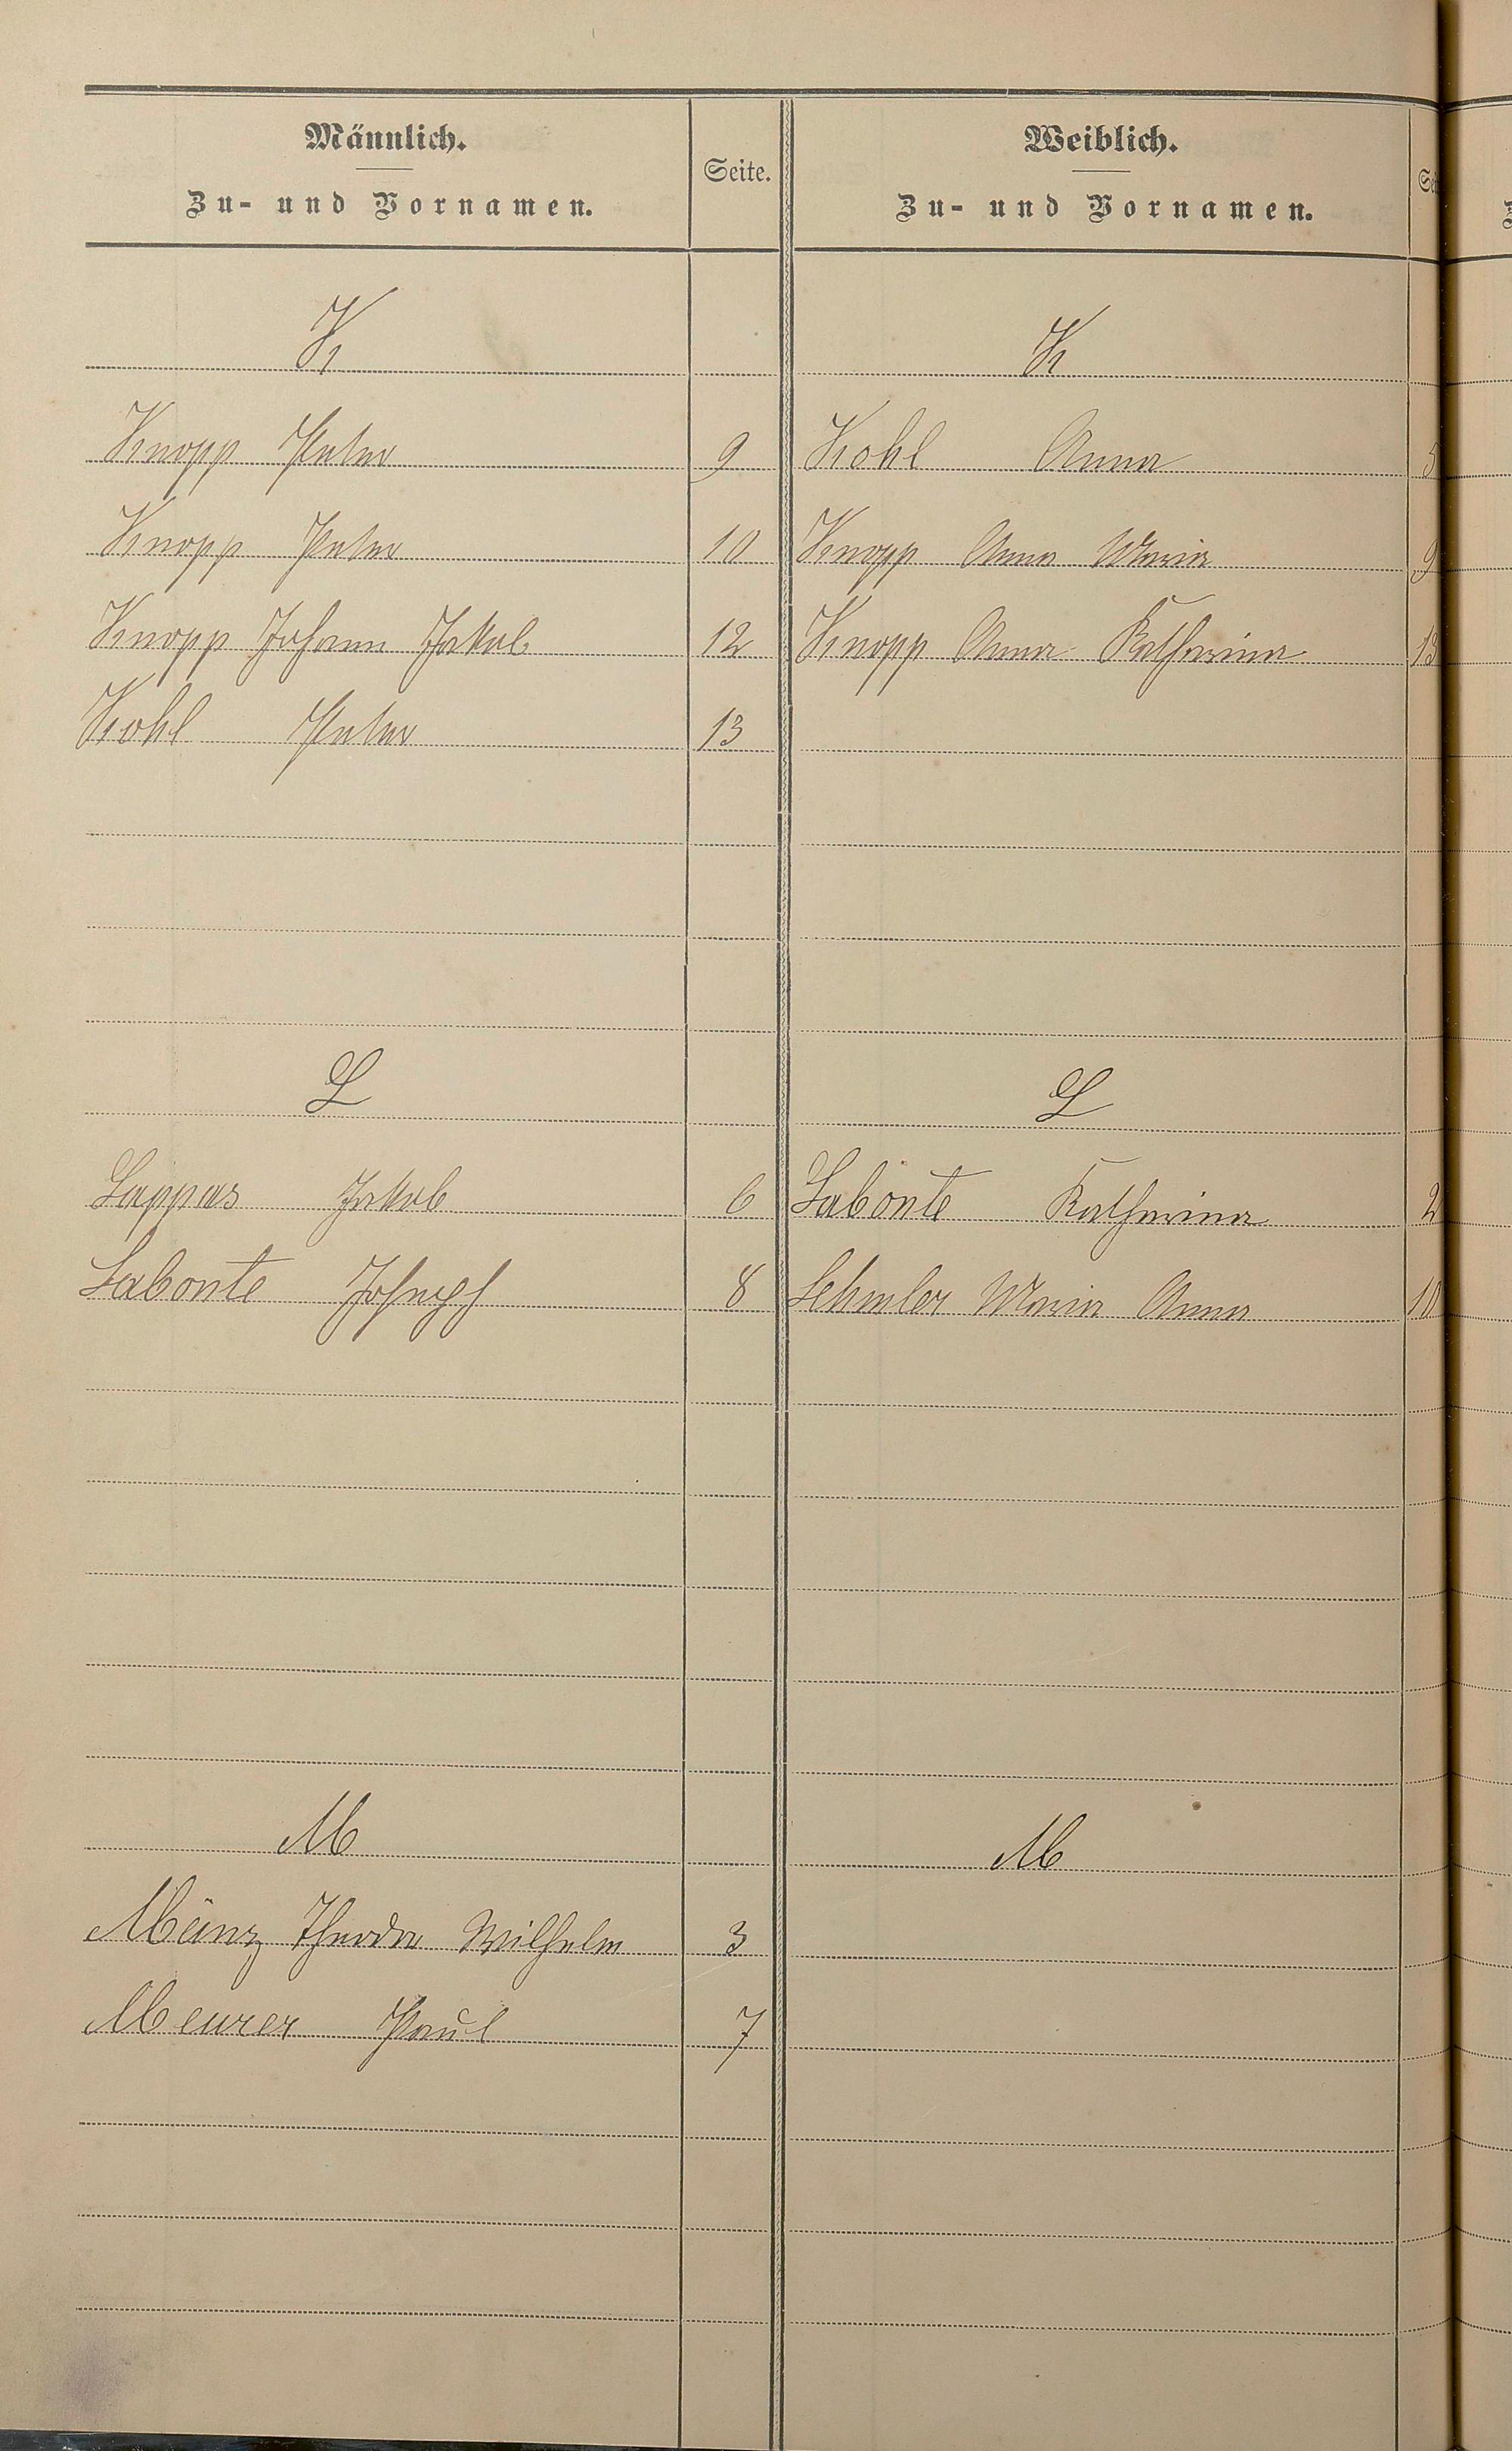 Männlich.
Zu- und Vornamen.
Seite.
Weiblich.
Zu- und Vornamen.
K
K
Knopp Peter 9 Kohl Anna 5
Knopp Peter 10 Knopp Anna Maria 9
Knopp Johann Jakob 12 Knopp Anna Katharina 13
Kohl Peter 13
L
L
Lappas Jakob 6 Labonte Katharina 2
Labonte Joseph 8 Lehmler Maria Anna 10
M
M
Münz Theodor Wilhelm 3
Meurer Paul 7